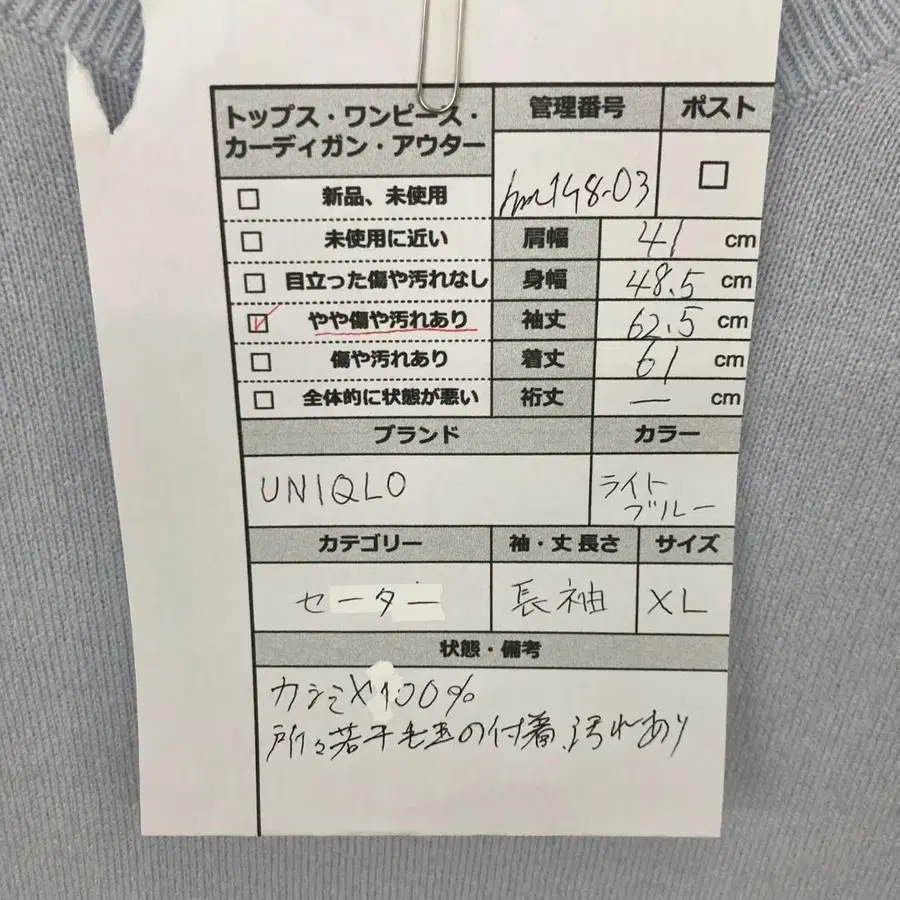 トップス・ワンピース・
カーディガン・アウター
管理番号
ポスト
hm148-03
□
□ 新品、未使用
□ 未使用に近い
□ 目立った傷や汚れなし
☑ やや傷や汚れあり
□ 傷や汚れあり
□ 全体的に状態が悪い
肩幅 41 cm
身幅 48.5 cm
袖丈 62.5 cm
着丈 61 cm
裄丈 — cm
ブランド
カラー
UNIQLO
ライト
ブルー
カテゴリー
袖・丈 長さ
サイズ
セーター
長袖
XL
状態・備考
カシミヤ100%
所々若干毛玉の付着、汚れあり